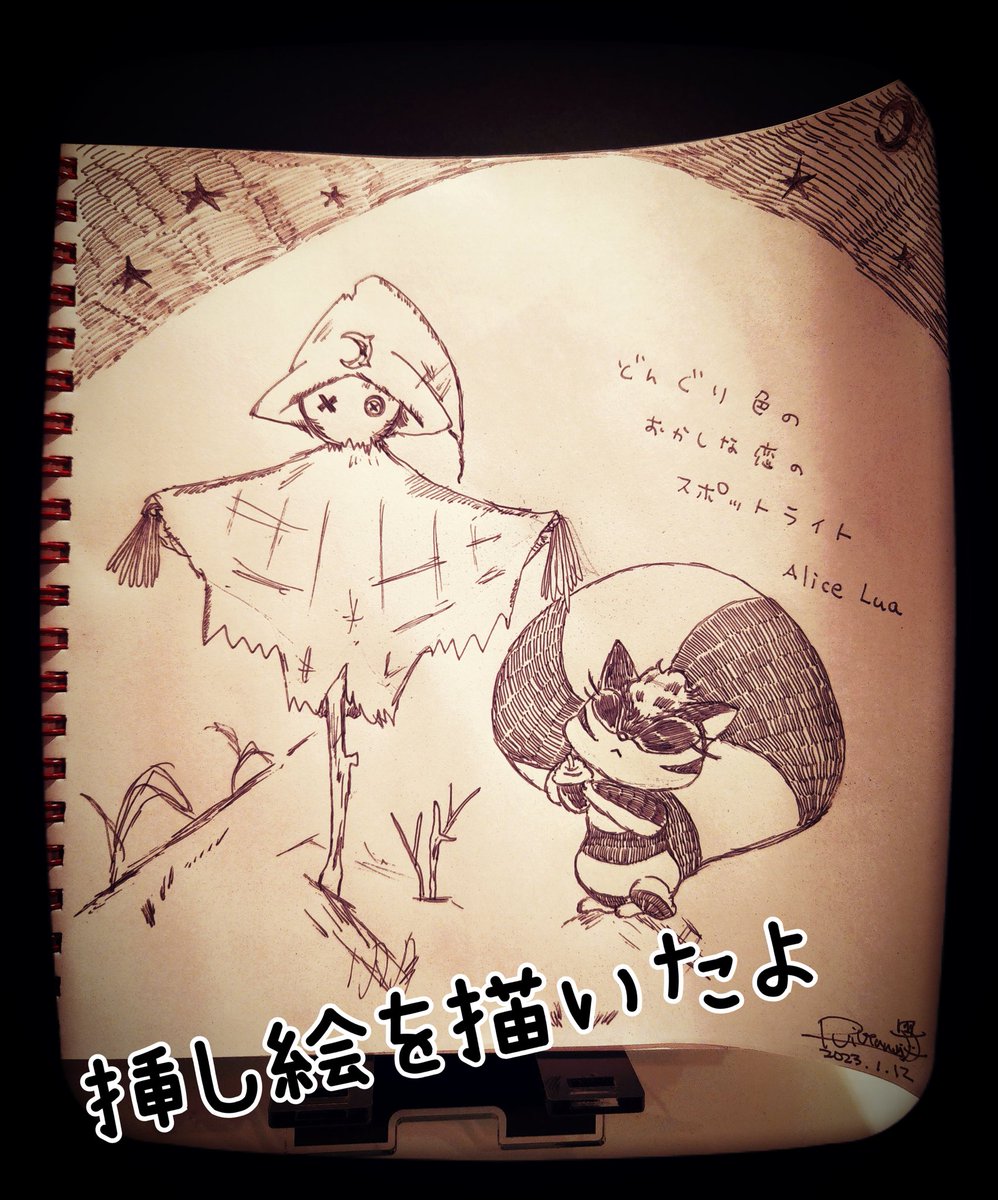 どんぐり色の
おかしな恋の
スポットライト
Alice Lua
2023.1.12
挿し絵を描いたよ